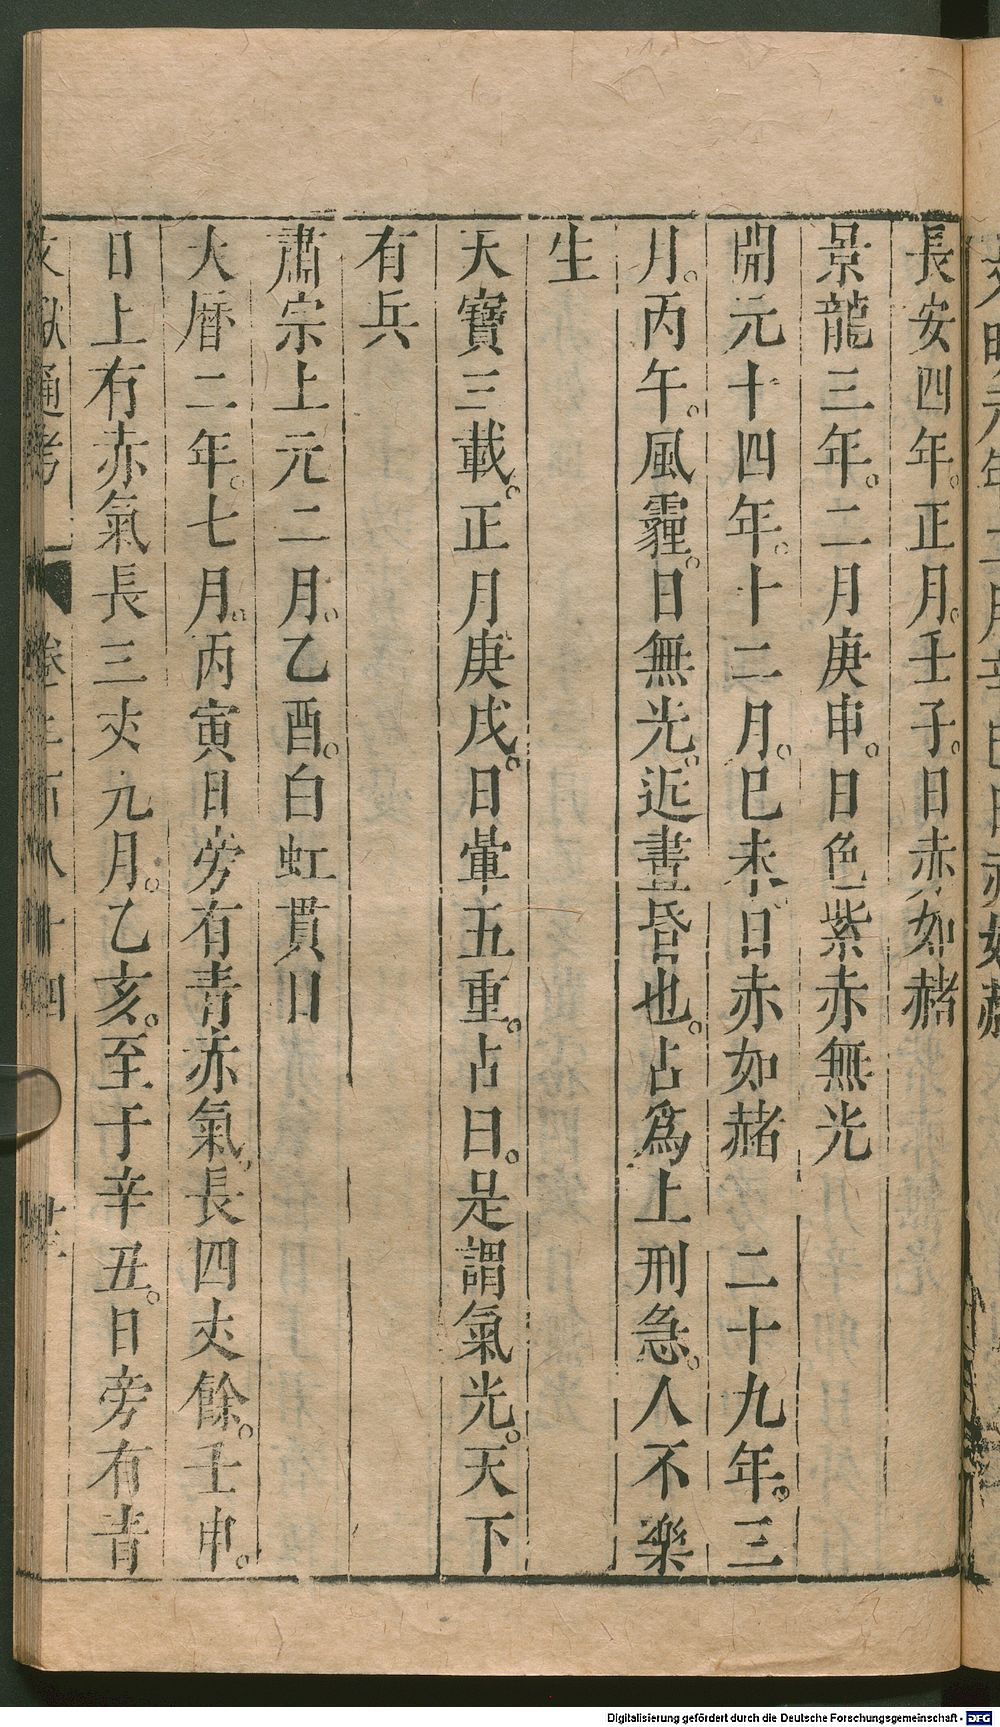 長安四年。正月。壬子。日赤如赭
景龍三年。二月庚申。日色紫赤無光
開元十四年。十二月。巳未。日赤如赭　二十九年。三
月。丙午。風霾。日無光。近晝昏也。占爲上刑急。人不樂
生
天寶三載。正月庚戌。日暈五重。占曰。是謂氣光。天下
有兵
肅宗上元二月。乙酉。白虹貫日
大曆二年。七月。丙寅日旁有青赤氣。長四丈餘。壬申。
日上有赤氣長三丈九月。乙亥。至于辛丑。日旁有青
通考
Digitalisierung gefördert durch die Deutsche Forschungsgemeinschaft - DFG